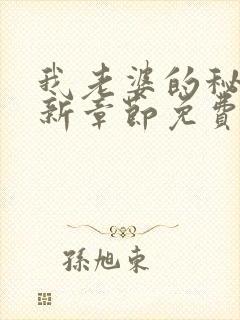 我老婆的秘
新章節免費
孫旭東